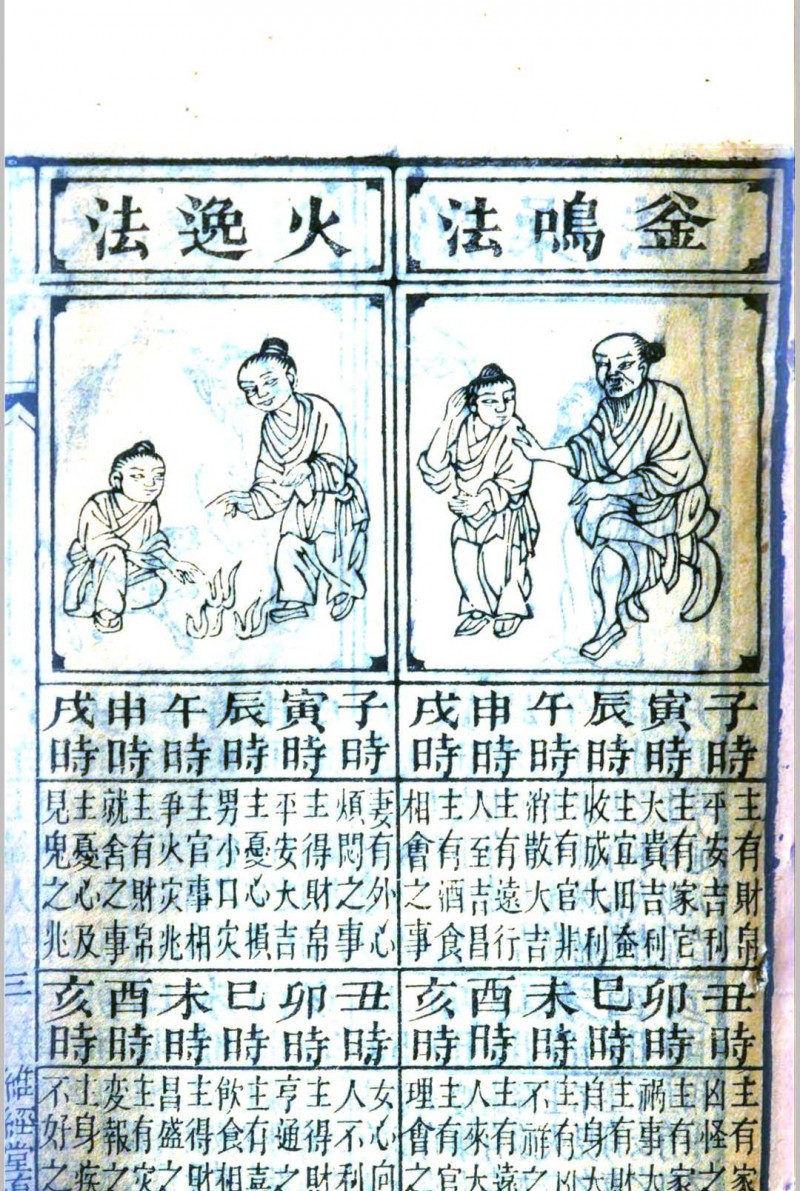 釡鳴法
子時
主有財帛
平安吉利
寅時
主有家
大貴吉利
辰時
主宜田蚕
收成大利
午時
主有官非
消散大吉
申時
主有遠行
人至吉昌
戌時
主有酒食
相會之事
丑時
主有家
凶怪之
卯時
主有家
祸事大
巳時
主有財
自身大
未時
主有凶
不祥之
酉時
主有遠
人來大
亥時
主有官
理會之
火逸法
子時
妻有外心
煩悶之事
寅時
主得財帛
平安大吉
辰時
主憂心損
男小口灾
午時
主官事相
爭火灾兆
申時
主有財帛
就舍之事
戌時
主憂心及
見鬼之兆
丑時
女心向
人不利
卯時
主得財
亨通之
巳時
主有喜
飲食相
未時
主得財
昌盛之
酉時
主有灾
变報之
亥時
主身疾
不好之
三
維經堂